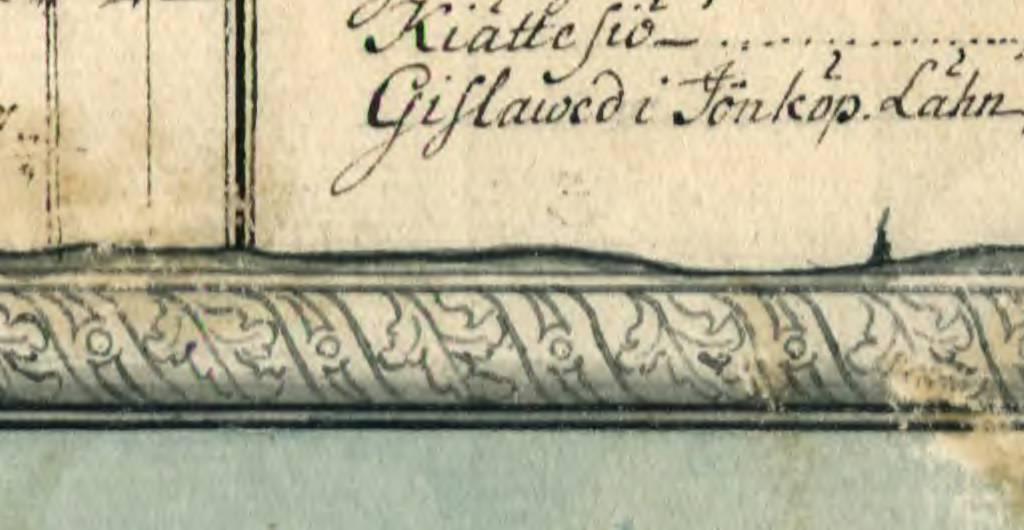 Kiättesiö_ ..............
Gislawed i Jönköp. Lähn